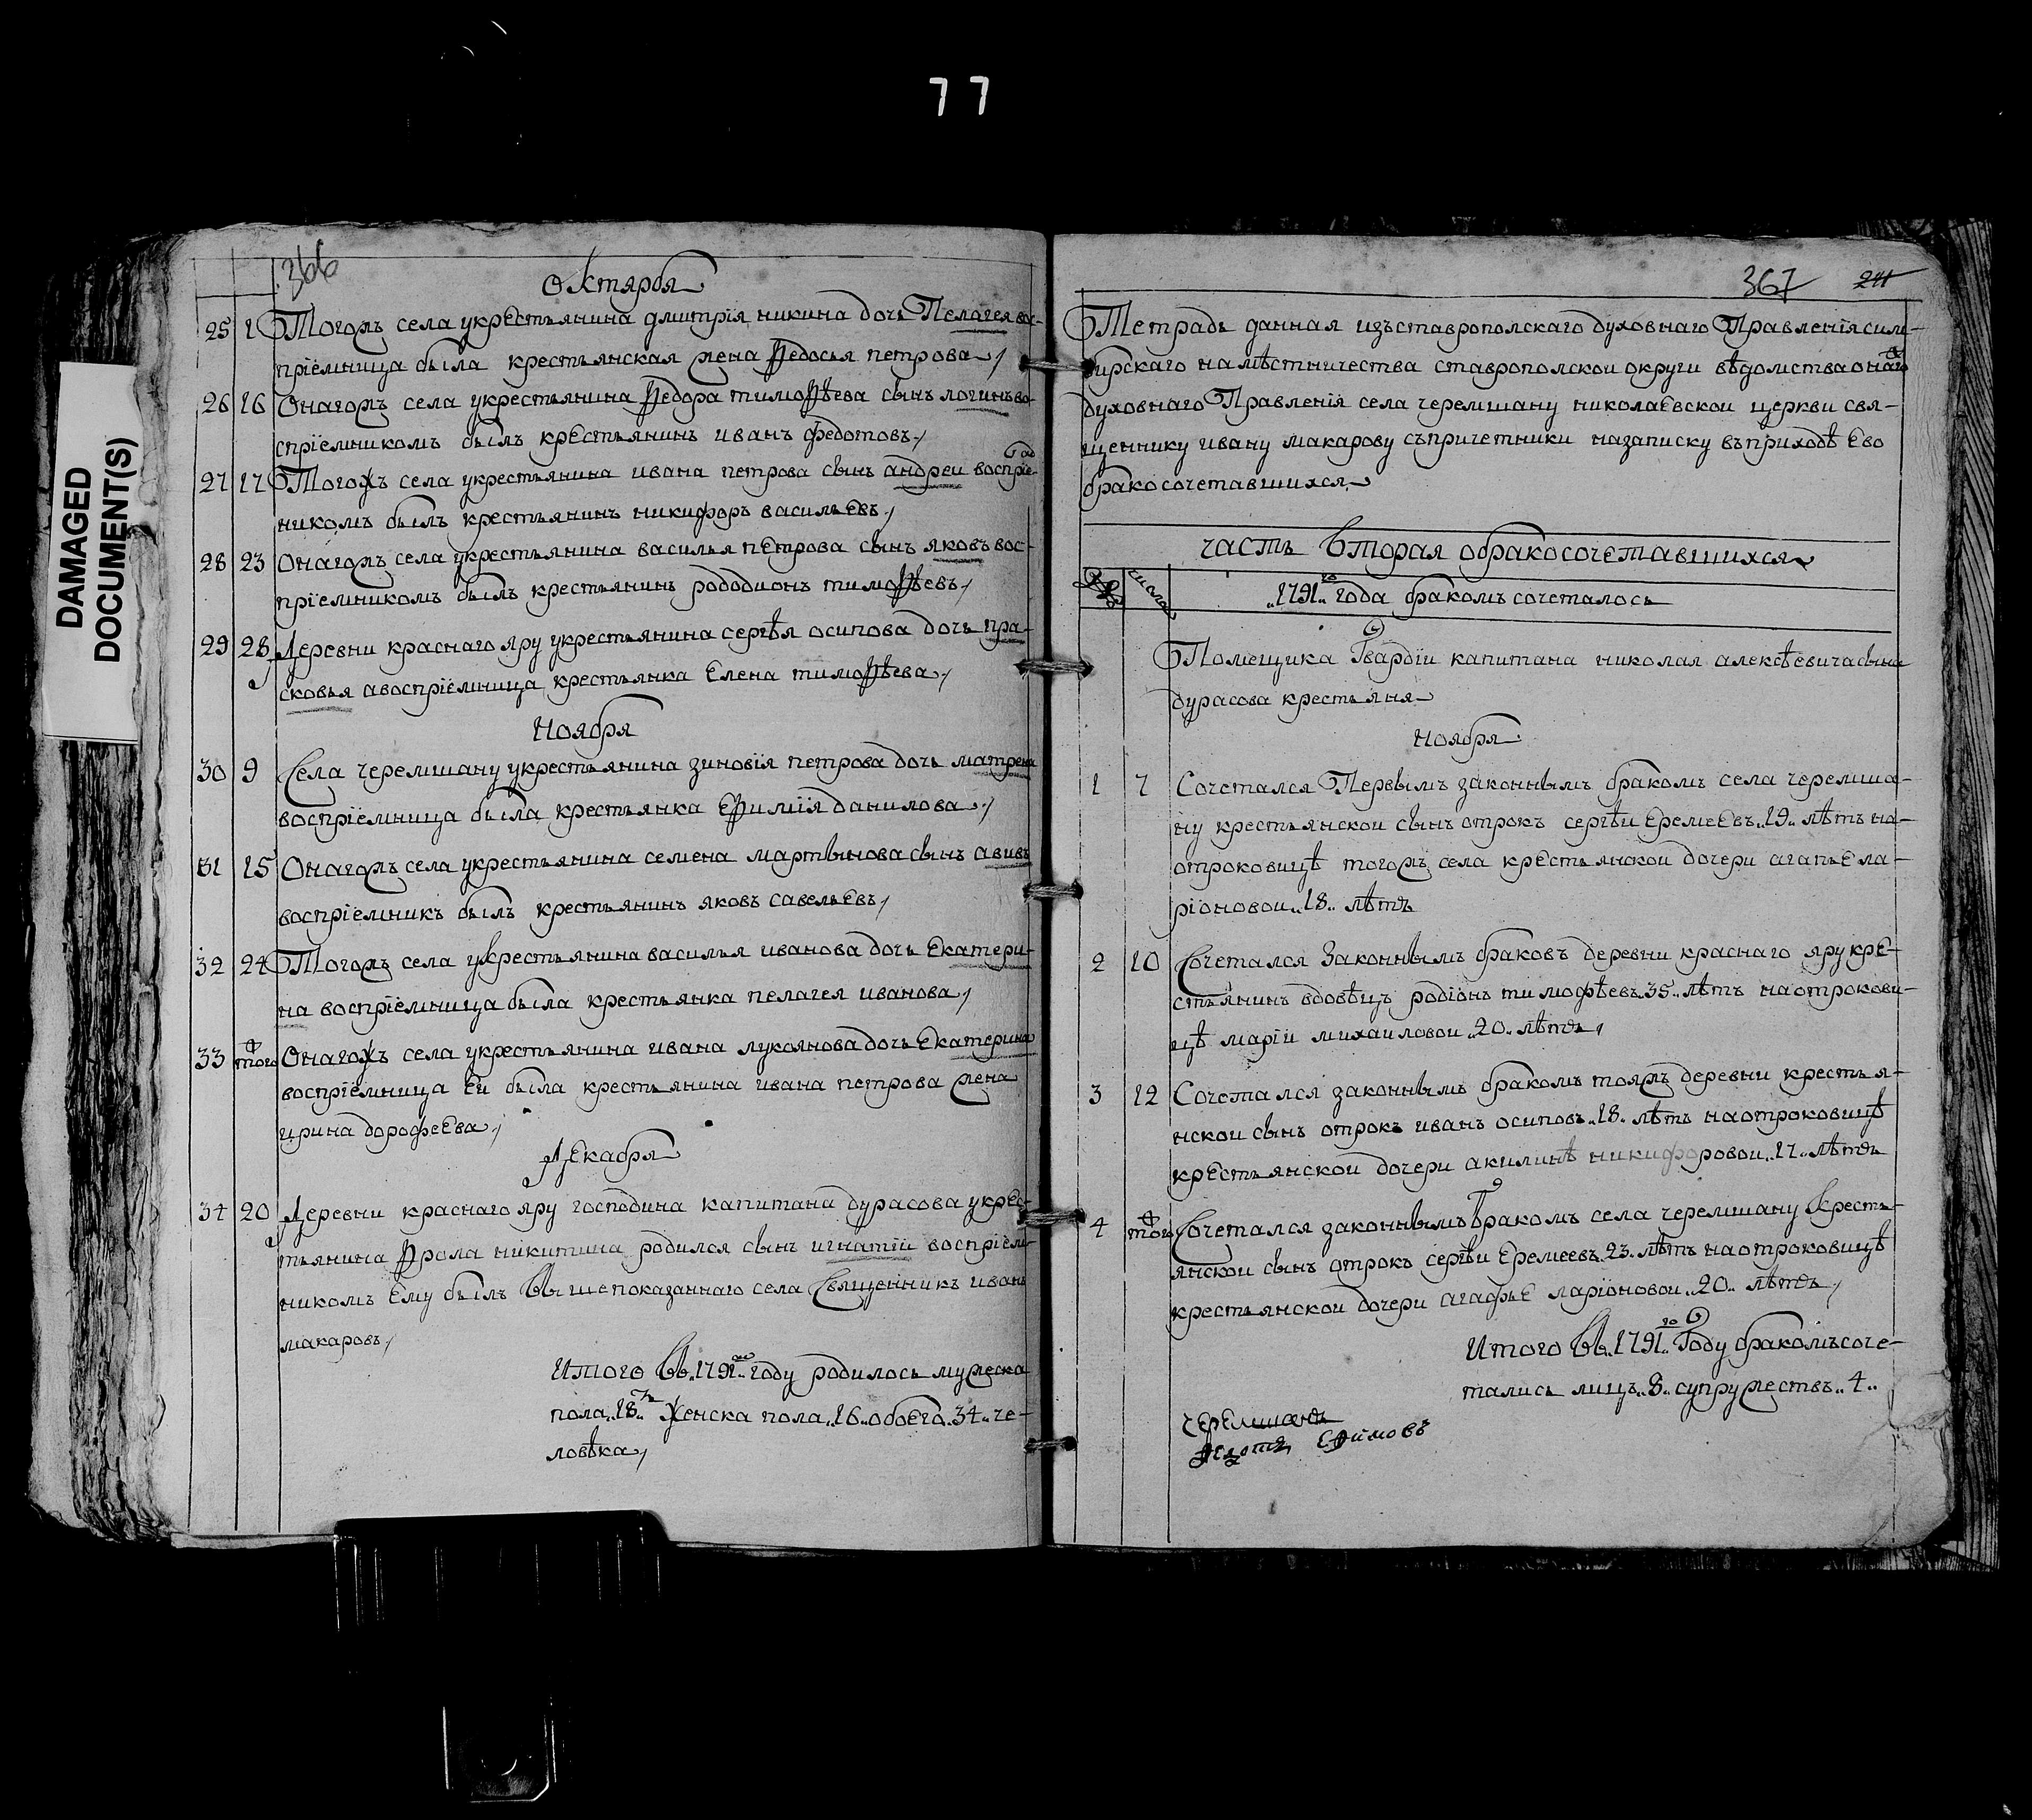 77
DAMAGED
DOCUMENT(S)
366
Октября
25 1 Тогожъ села укрестьянина дмитрія никина дочь Пелагея вос-
пріемница была крестьянская жена Федосья петрова
26 16 Онагожъ села укрестьянина Федора тимоФѣева сынъ логинъ во-
спріемникомъ былъ крестьянинъ иванъ федотовъ
27 17 Тогожъ села укрестьянина ивана петрова сынъ андреи воспріе-
никомъ былъ крестьянинъ никифоръ васильевъ
28 23 Онагожъ села укрестьянина василья петрова сынъ яковъ вос-
пріемникомъ былъ крестьянинъ рододионъ тимоФѣевъ
29 28 Деревни краснаго яру укрестьянина сергѣя осипова дочь пра-
сковья авоспріемница крестьянка Елена тимоФѣева
Ноября
30 9 Села черемшану укрестьянина зиновія петрова дочь матрена
воспріемница была крестьянка ЕФимія данилова
31 15 Онагожъ села укрестьянина семена мартынова сынъ авивъ
воспріемникъ былъ крестьянинъ яковъ савельевъ
32 24 Тогожъ села укрестьянина василья иванова дочь Екатери-
на воспріемница была крестьянка пелагея иванова
33 того Онагожъ села укрестьянина ивана лукоянова дочь Екатерина
воспріемница Еи была крестьянина ивана петрова жена
ирина дорофеева
Декабря
34 20 Деревни краснаго яру господина капитана дурасова укрес-
тьянина Фрола никитина родился сынъ игнатіи воспріем-
никомъ Ему былъ Вышепоказаннаго села Священникъ иванъ
макаровъ
Итого Въ 1791 году родилось мужеска
пола 18 Женска пола 16 обоего 34 че-
ловѣка
367 211
Тетрадь данная изъставрополскаго духовнаго Правленія сим-
бирскаго намѣстничества ставрополскои округи вѣдомства онаго
духовнаго Правленія села черемшану николаевскои церкви свя-
щеннику ивану макарову съпричетники назаписку въприходѣ Ево
бракосочетавшихся
часть Вторая обракосочетавшихся
числа 1791 го года бракомъ сочеталось
Помещика Гвардіи капитана николая алексѣевича сына
дурасова крестьяня
Ноября
1 7 Сочетался Первымъ законнымъ бракомъ села черемша-
ну крестьянскои сынъ отрокъ сергѣи Еремеевъ 19 лѣтъ на-
отроковицѣ тогожъ села крестьянскои дочери агапье ла-
ріоновои 18 лѣтъ
2 10 Сочетался Законнымъ браковъ деревни краснаго яру кре-
стьянинъ вдовецъ родіонъ тимофѣевъ 35 лѣтъ наотрокови-
цѣ маріи михаиловои 20 лѣтъ
3 12 Сочетался законнымъ бракомъ тояжъ деревни крестья-
нскои сынъ отрокъ иванъ осиповъ 18 лѣтъ наотроковицѣ
крестьянскои дочери акилинѣ никифоровои 17 лѣтъ
4 того Сочетался законнымъ бракомъ села черемшану Кресть-
янскои сынъ отрокъ сергѣи Еремеевъ 23 лѣтъ наотроковицѣ
крестьянскои дочери агафье ларіоновои 20 лѣтъ
Итого Въ 1791 го Году бракомъ соче-
тались лицъ 8 супружествъ 4
черемшанъ
ЕФимовъ